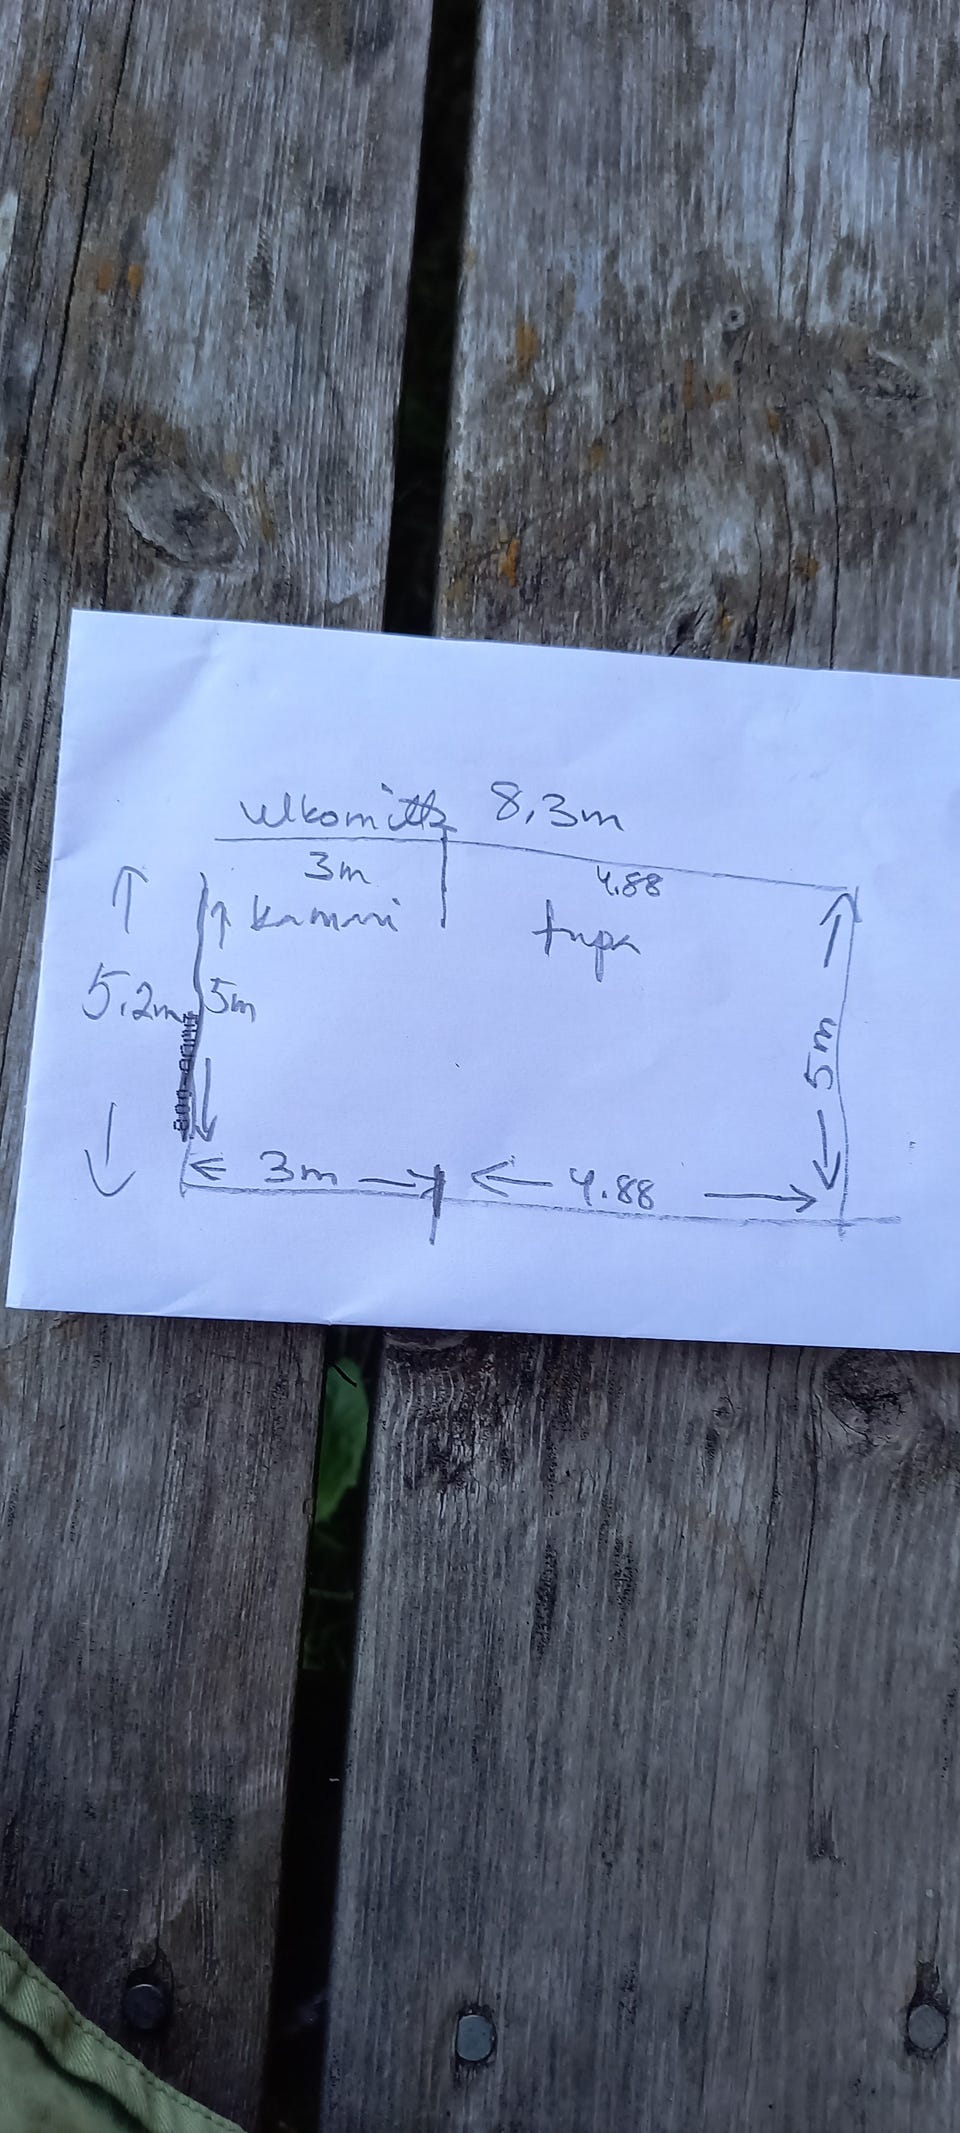 ulkomitta 8,3m
3m 4.88
kammari tupa
5.2m 5m
5m
3m 4.88